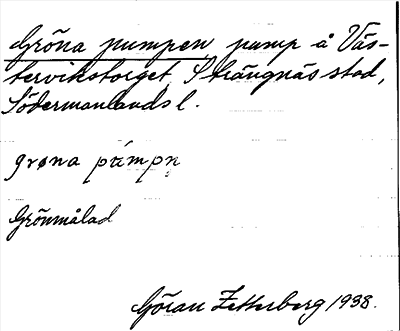 Gröna pumpen, pump å Väs-
tervikstorget, Strängnäs stad,
Södermanlands l.
grøna pumpn
Grönmålad
Göran Zetterberg 1938.